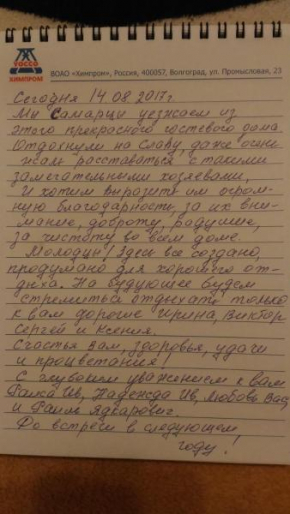 ТОССО
ХИМПРОМ
ВОАО «Химпром», Россия, 400057, Волгоград, ул. Промысловая, 23
Сегодня 14.08.2017г.
Мы Самарци уезжаем из
этого прекрасного гостевого дома
Отдохнули на Славу, даже очень
жаль расставаться с такими
замечательными хозяевами.
И хотим выразить им огром-
ную благодарность, за их вни-
мание, доброту, радушие,
за чистоту во всём доме.
Молодцы! Здесь всё создано,
продумано для хорошего от-
дыха. На будующее будем
стремиться отдыхать только
к вам дорогие Ирина, Виктор
Сергей и Ксения.
Счастья Вам, здоровья, удачи
и процветания!
С глубоким уважением к Вам
Ив, Надежда Ив, Любовь Вас,
и
До встречи в следующем
году!